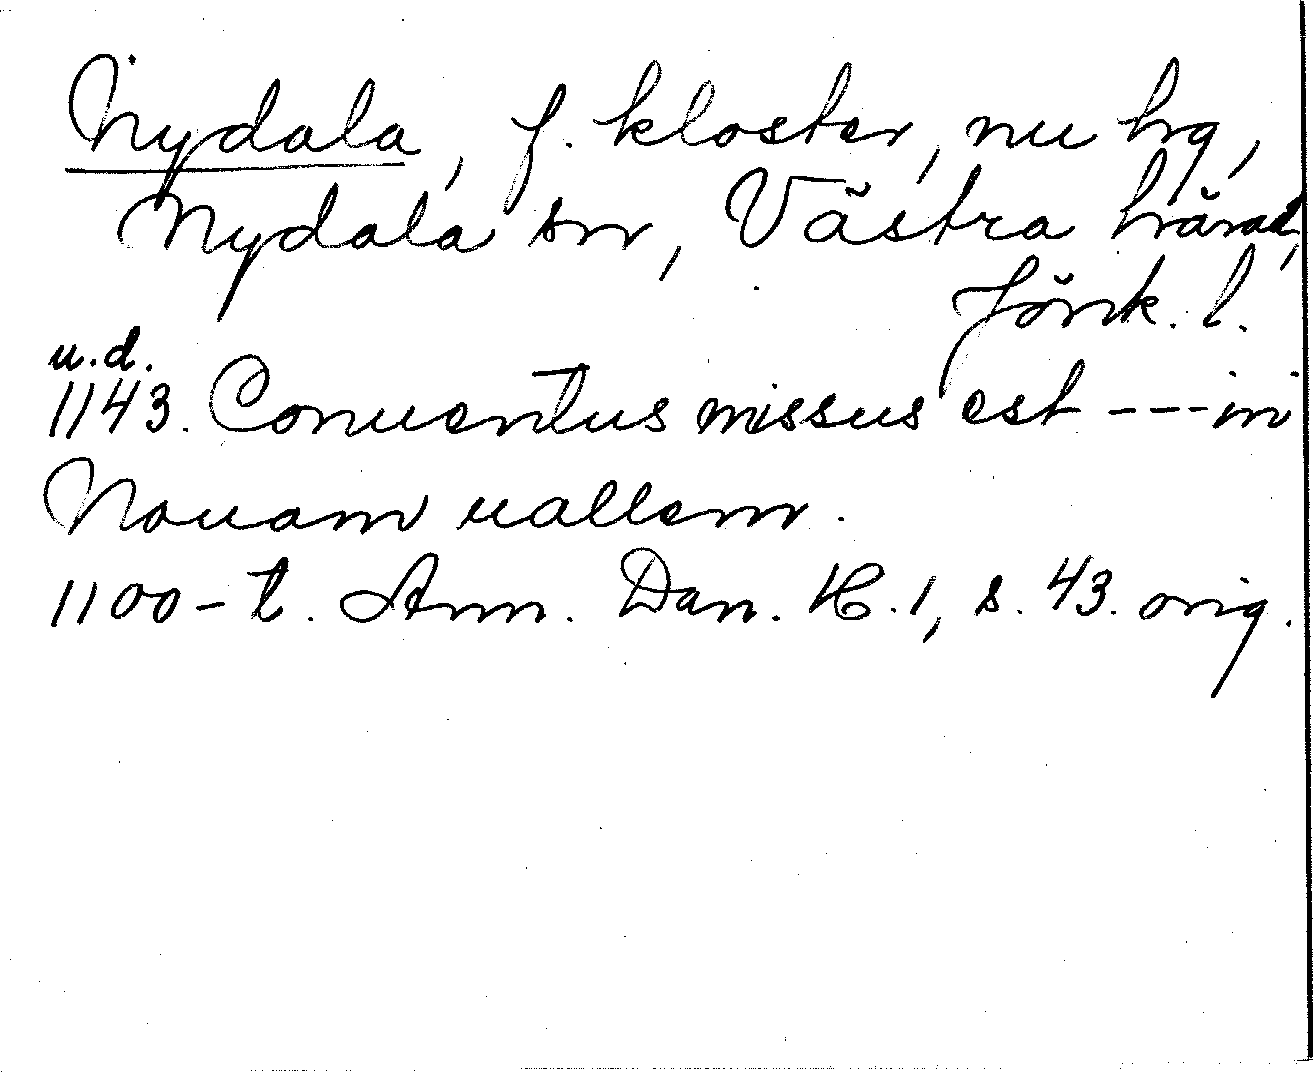 Nydala, f. kloster, nu hg,
Nydala sn, Västra härad,
Jönk. l.
u.d.
1143. Conuentus missus est --- in
Nouam uallem.
1100-t. Ann. Dan. K. 1, s. 43. orig.